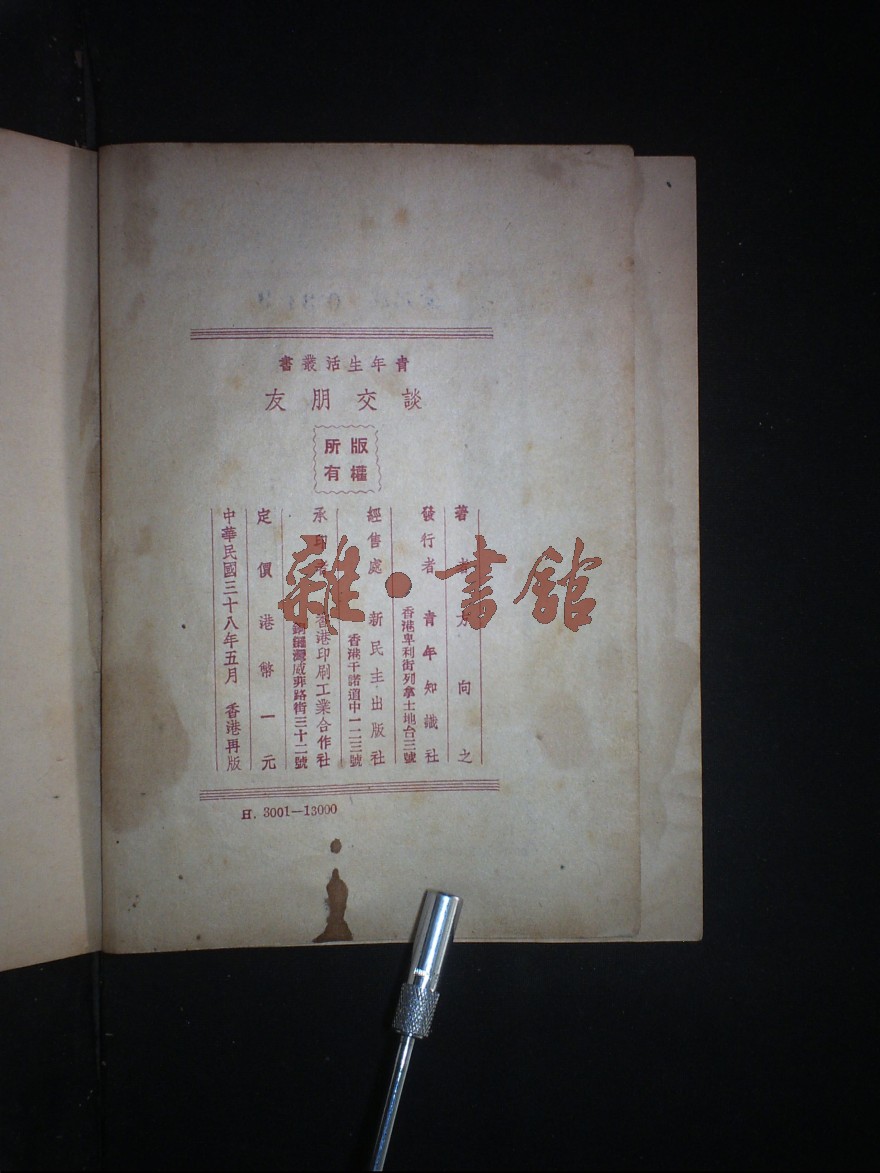 青年生活叢書
談交朋友
版權
所有
著者 方向之
發行者 青年知識社
香港卑利街列拿士地台三號
經售處 新民主出版社
香港干諾道中一二三號
承印者 香港印刷工業合作社
銅鑼灣威菲路街三十二號
定價港幣一元
中華民國三十八年五月 香港再版
H. 3001—13000
雜·書館